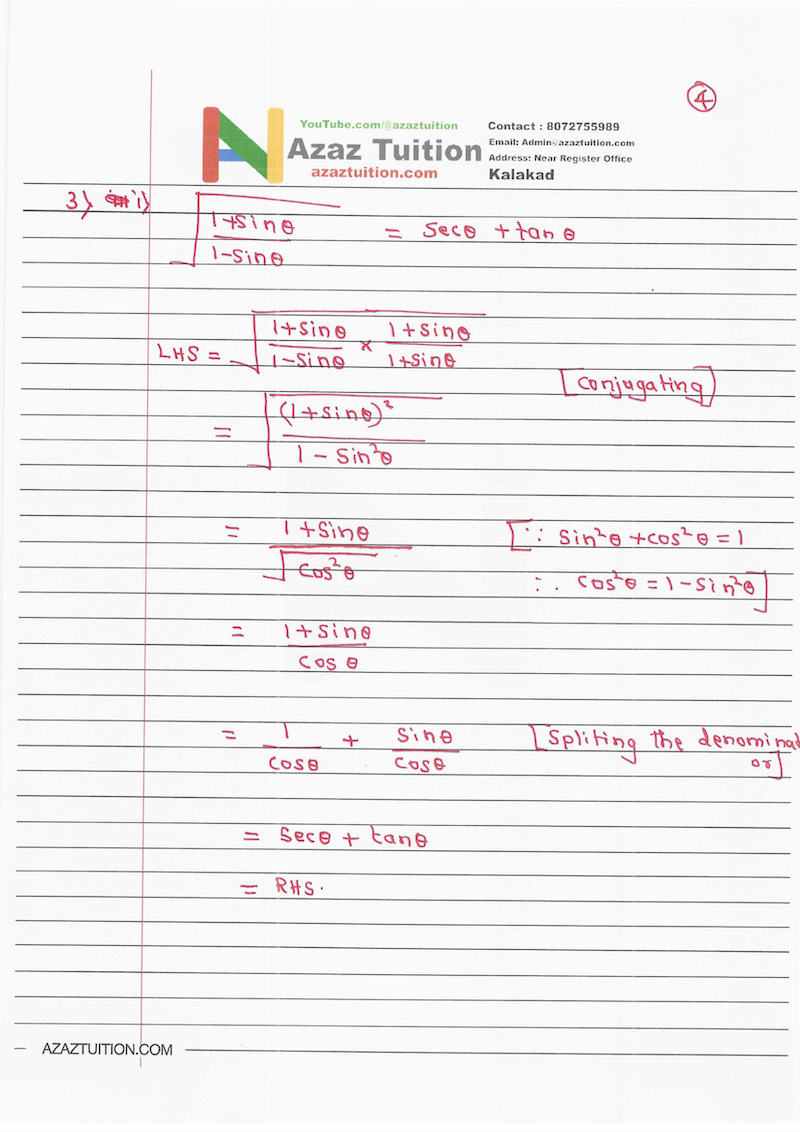 4
YouTube.com/@azaztuition
Azaz Tuition
azaztuition.com
Contact : 8072755989
Email: Admin@azaztuition.com
Address: Near Register Office
Kalakad
3) i) √(1+sinθ / 1-sinθ) = secθ + tanθ
LHS = √(1+sinθ / 1-sinθ × 1+sinθ / 1+sinθ)
[conjugating]
= √((1+sinθ)² / 1-sin²θ)
= 1+sinθ / √cos²θ [∵ sin²θ + cos²θ = 1
∴ cos²θ = 1-sin²θ]
= 1+sinθ / cosθ
= 1/cosθ + sinθ/cosθ [spliting the denominat
or]
= secθ + tanθ
= RHS.
AZAZTUITION.COM